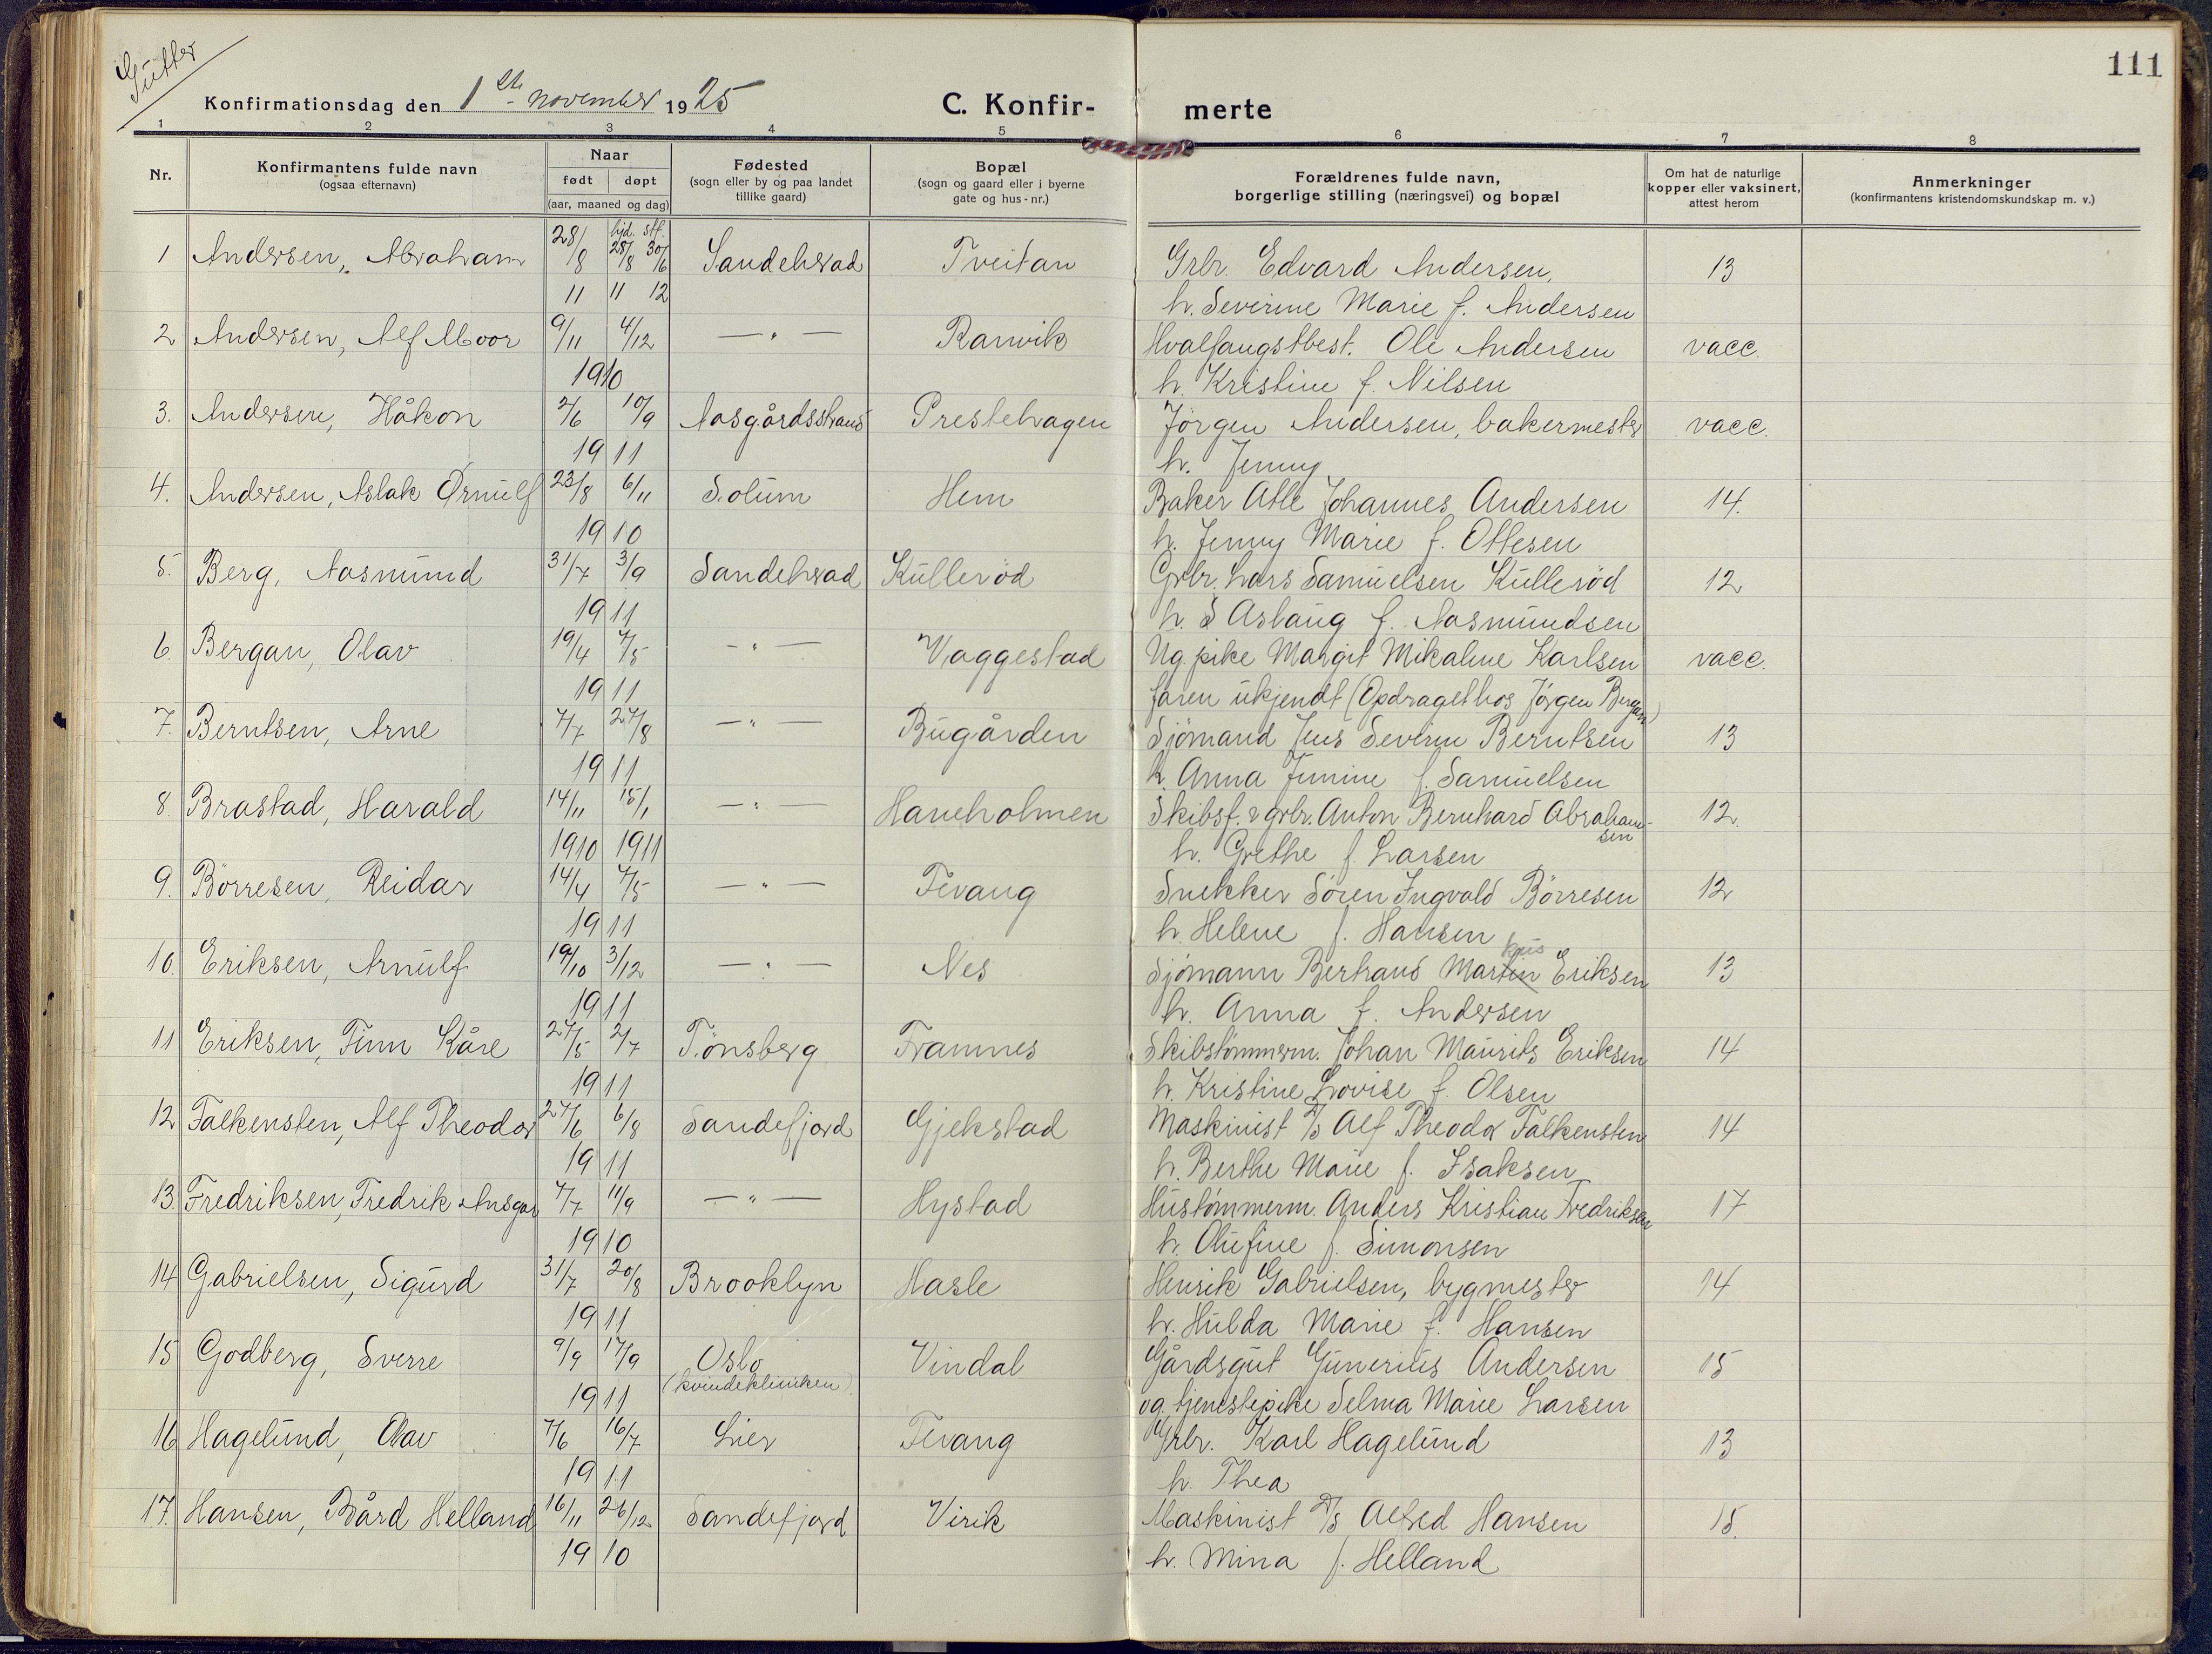 Gutter
111
Konfirmationsdag den 1ste november 1925
C. Konfir-
merte
1 2 3 4 5 6 7 8
Nr.
Konfirmantens fulde navn
(ogsaa efternavn)
Naar
født døpt
(aar, maaned og dag)
Fødested
(sogn eller by og paa landet
tillike gaard)
Bopæl
(sogn og gaard eller i byerne
gate og hus-nr.)
Forældrenes fulde navn,
borgerlige stilling (næringsvei) og bopæl
Om hat de naturlige
kopper eller vaksinert,
attest herom
Anmerkninger
(konfirmantens kristendomskundskap m. v.)
hjd. stf.
1 Andersen, Abraham 28/8 28/8 30/6 Sandeherad Tveitan Grbr. Edvard Andersen, 13
11 11 12 h. Severine Marie f. Andersen
2 Andersen, Alf Moor 9/11 4/12 — " — Ranvik Hvalfangstbest. Ole Andersen vacc.
1910 h. Kristine f. Nilsen
3. Andersen, Håkon 2/6 10/9 Aasgårdsstrand Prestehagen Jörgen Andersen, bakermester vacc.
1911 h. Jenny
4. Andersen, Aslak Ørnulf 23/8 6/11 Solum Hem Baker Atle Johannes Andersen 14.
1910 h. Jenny Marie f. Ottesen
5. Berg, Aasmund 31/7 3/9 Sandeherad Kulleröd Grbr. Lars Samuelsen Kulleröd 12
1911 h. S Aslaug f. Aasmundsen
6. Bergan, Olav 19/4 7/5 — " — Vaggestad Ug. pike Margit Mikaline Karlsen vacc.
1911 faren ukjendt (Opdraget hos Jörgen Bergan)
7. Berntsen, Arne 7/7 27/8 — " — Bugården Sjömand Jens Severin Berntsen 13
1911 h. Anna Junine f. Samuelsen
8. Brastad, Harald 14/11 15/1 — " — Haneholmen Skibsf. & grbr. Anton Bernhard Abraham- 12.
sen
1910 1911 h. Grethe f. Larsen
9. Börresen, Reidar 14/4 7/5 — " — Fevang Snekker Sören Ingvald Börresen 12
1911 h. Helene f. Hansen
10. Eriksen, Arnulf 19/10 3/12 — " — Nes Sjömann Bertrand Martin Eriksen 13
1911 h. Anna f. Andersen
11 Eriksen, Finn Kåre 27/5 2/7 Tönsberg Framnes Skibstömmerm. Johan Maurits Eriksen 14
1911 h. Kristine Lovise f. Olsen
12 Falkensten, Alf Theodor 27/6 6/8 Sandefjord Gjekstad Maskinist D/S Alf Theodor Falkensten 14
1911 h. Berthe Marie f. Isaksen
13. Fredriksen, Fredrik Ansgar 7/7 11/9 — " — Hystad Hustömmerm. Anders Kristian Fredriksen 17
1910 h. Olufine f. Simonsen
14 Gabrielsen, Sigurd 31/7 20/8 Brooklyn Hasle Henrik Gabrielsen, bygmester 14
1911 h. Hulda Marie f. Hansen
15 Godberg, Sverre 9/9 17/9 Oslo Vindal Gårdsgut Gunerius Andersen 15
1911 (kvindekliniken) og tjenestepike Selma Marie Larsen
16 Hagelund, Olav 7/6 16/7 Lier Fevang Grbr. Karl Hagelund 13
1911 h. Thea
17. Hansen, Bård Helland 16/11 26/12 Sandefjord Virik Maskinist D/S Alfred Hansen 15.
1910 h. Mina f. Helland